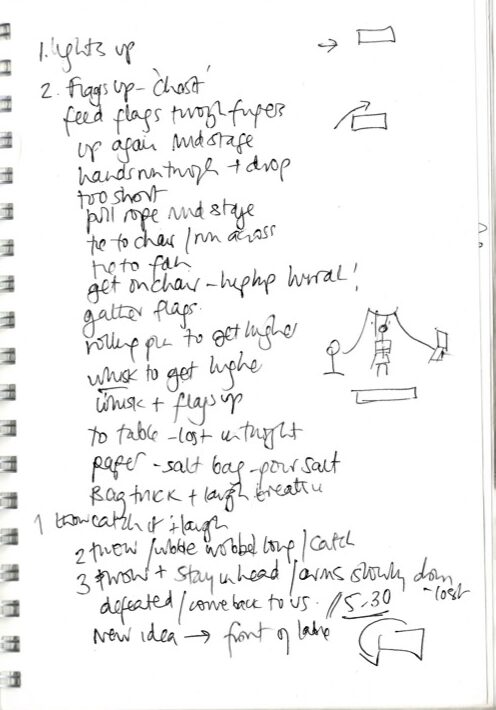 1. lights up
2. Flags up - 'chost'
feed flags through fingers
up again mid stage
hands run through + drop
too short
pull rope mid stage
tie to chair / run across
tie to fan
get on chair - hip hip hurrah!
gather flags.
rolling pin to get higher
whisk to get higher
whisk + flags up
to table - lost in thought
paper - salt bag - pour salt
Bag trick + laugh
1 throw catch it + laugh
2 throw / wibble wobble long / catch
3 throw + stay in head / arms slowly down - lost
defeated / come back to us. // 5.30
New idea → front of table